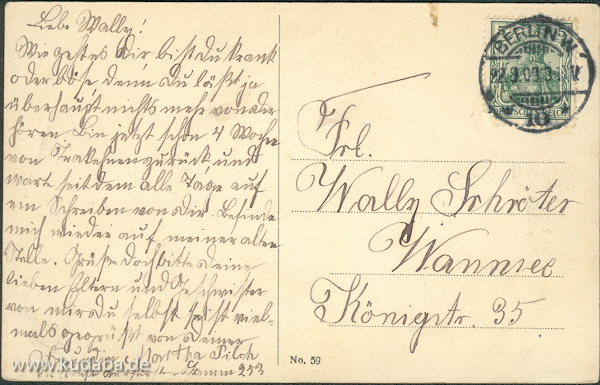 Liebe Wally!
Wie geht es Dir bist Du krank
oder böse denn Du läßt ja
überhaupt nichts mehr von dir
hören Bin jetzt schon 4 Woche
von Trakehnen zurück und
warte seit dem alle Tage auf
ein Schreiben von Dir. Befinde
mich wieder auf meiner alten
Stelle. Grüße doch bitte Deine
lieben Eltern und Geschwister
von mir du selbst seist viel-
mals gegrüßt von Deiner
Martha Pilch
253
BERLIN.W.
10
Frl.
Wally Schröter
Wannsee
Königstr. 35
No. 59
www.kudaba.de